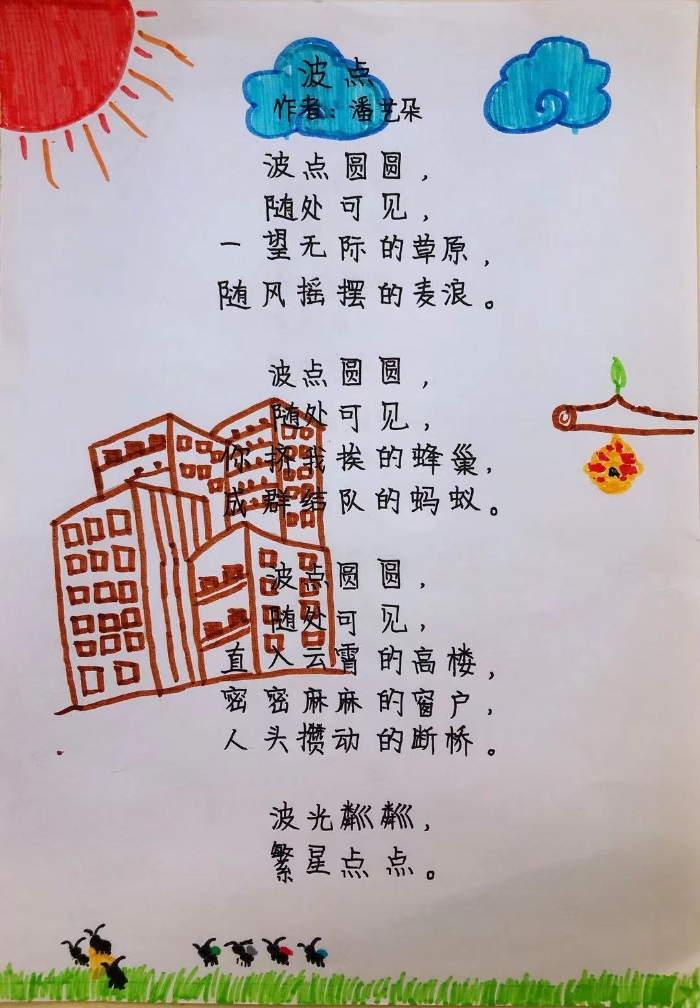 波点
作者：潘艺朵
波点圆圆，
随处可见，
一望无际的草原，
随风摇摆的麦浪。
波点圆圆，
随处可见，
你挤我挨的蜂巢，
成群结队的蚂蚁。
波点圆圆，
随处可见，
直入云霄的高楼，
密密麻麻的窗户，
人头攒动的断桥。
波光粼粼，
繁星点点。